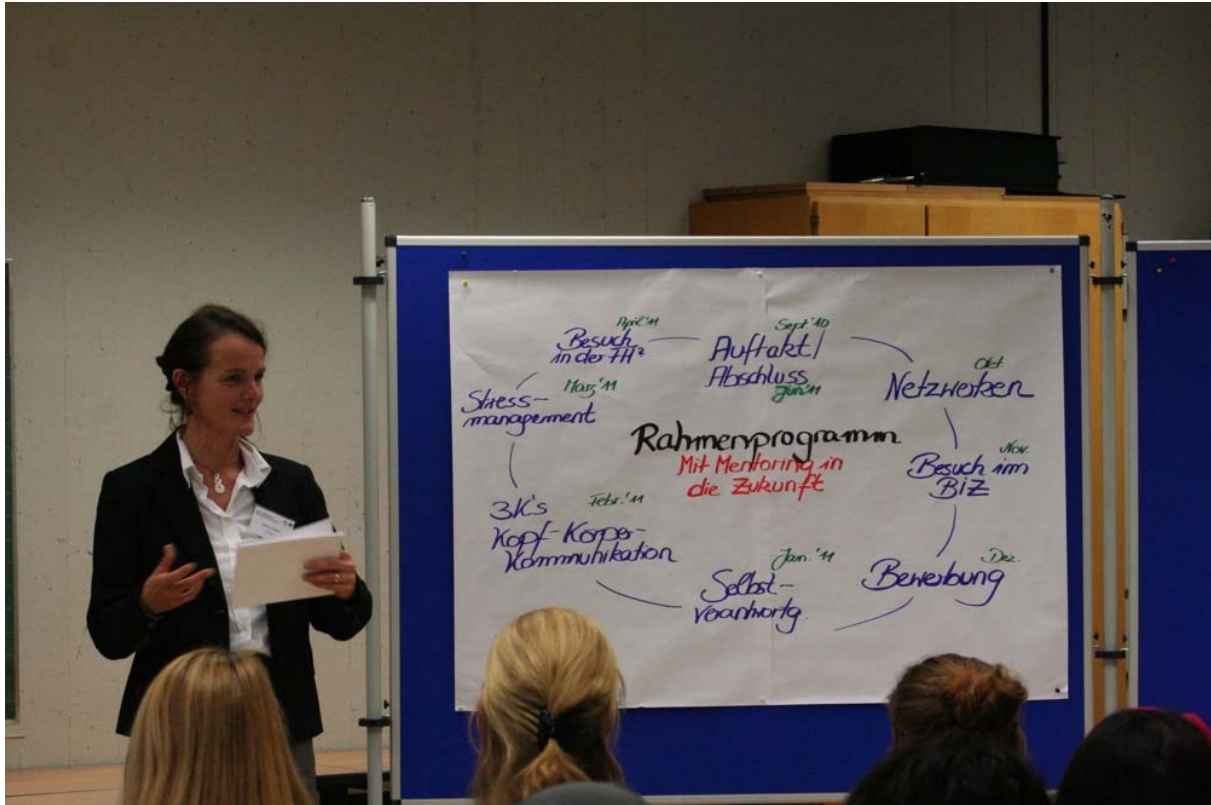 Rahmenprogramm
Mit Mentoring in
die Zukunft
Sept.'10
Auftakt/
Abschluss
Juni'11
Okt.
Netzwerken
Nov.
Besuch im
BiZ
Dez.
Bewerbung
Jan.'11
Selbst-
verantwortg.
Febr.'11
3K's
Kopf-Körper-
Kommunikation
März'11
Stress-
management
April'11
Besuch
in der FH²